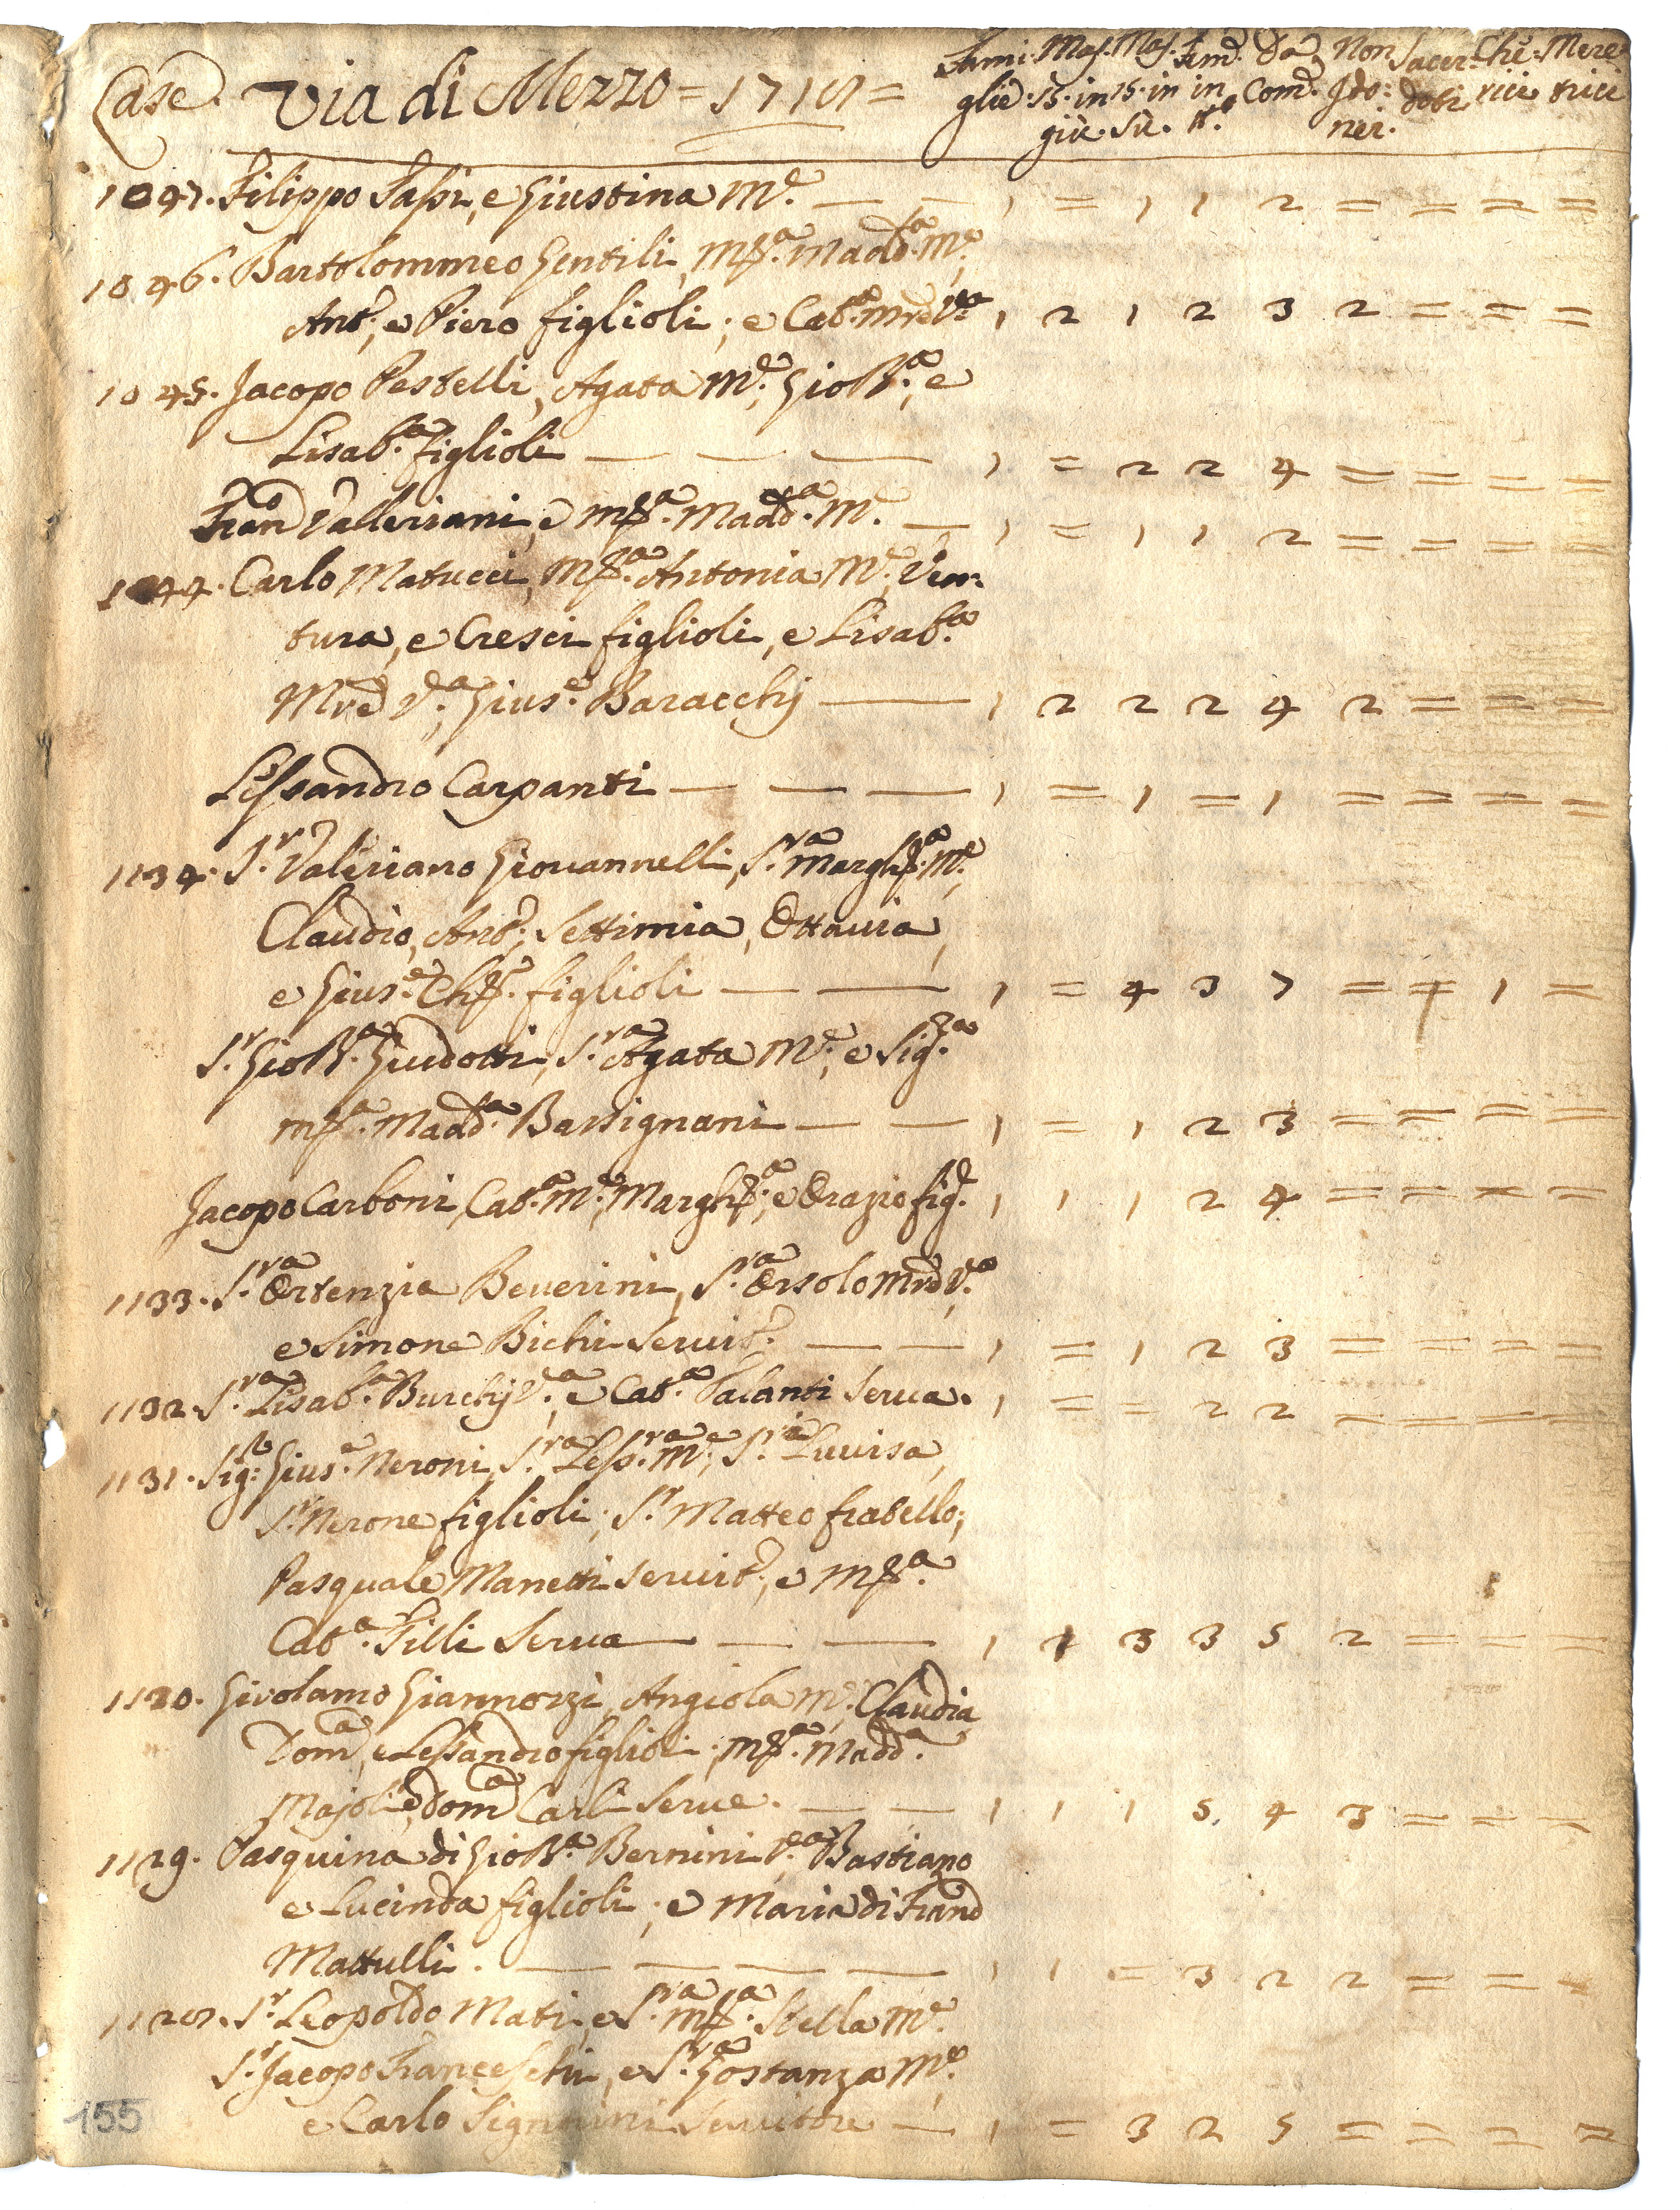 Case. Via di Mezzo = 1718 = Fami: Mas. Mas. Fem. Da Non Sacer= Che= Mere=
glie. 15. in 15. in in Com. Ido= doti rici trici
giù. Sù. tt.e nei.
1047. Filippo Sassi, e Giustina M.e — — 1 = 1 1 2 = = = =
1046. Bartolommeo Gentili, M.ª Madd.ª M.e,
Ant.º, e Piero figlioli; e Cat.ª Mre V.ª 1 2 1 2 3 2 = = =
1045. Jacopo Pestelli, Agata M.e, Gio B.ª, e
Lisab.ª figlioli — — — 1 = 2 2 4 = = = =
Fran.º Valleriani, e M.ª Madd.ª M. — 1 = 1 1 2 = = = =
1044. Carlo Matucci, M.ª Antonia M.e, Ven=
tura, e Cresci figlioli, e Lisab.ª
Mre V.ª, Gius.e Baracchj — 1 2 2 2 4 2 = = =
Lessandro Carpanti — — — 1 = 1 = 1 = = = =
1134. S.r Valeriano Giovannelli, S.ra Margh.ª M.e,
Claudio, Ant.º, Settimia, Ottavia,
e Gius.e Ch. figlioli — — 1 = 4 3 7 = = 1 =
S.r Gio B.ª Guidotti, S.ra Agata M.e, e Sig.ra
M.ª Madd.ª Bassignani — — 1 = 1 2 3 = = = =
Jacopo Carboni, Cat.ª M.e, Margh.ª, e Orazio fig.i 1 1 1 2 4 = = = =
1133. S.ra Ortenzia Beverini, S.ra Orsola Mre V.ª
e Simone Bichi Servit.e — — 1 = 1 2 3 = = = =
1132. S.ra Lisab.ª Burchj V.ª, e Cat.ª Palanti Serva. 1 = = 2 2 = = = =
1131. Sig.r Gius.e Neroni, S.ra Less.ra M.e, S.ra Luvisa,
S.r Nerone figlioli; S.r Matteo fratello;
Pasquale Manetti Servit.e, e M.ª
Cat.ª Filli Serva — — 1 1 3 3 5 2 = = =
1130. Girolamo Giannozzi, Angiola M.e, Claudia,
Dom.ª, e Lessandro figlioli; M.ª Madd.ª
Majoli, e Dom.ª Carli Serve. — — 1 1 1 5. 4 3 = = =
1129. Pasquina di Gio B.ª Bernini V.ª, Bastiano
e Lucinda figlioli; e Maria di Fran.º
Mattulli. — — — — 1 1 = 3 2 2 = = =
1128. S.r Leopoldo Mati, e S.ra M.ª Stella M.e
S.r Jacopo Franceschi, e S.ra Gostanza M.e,
e Carlo Signorini Servitore — 1 = 3 2 5 = = = =
155